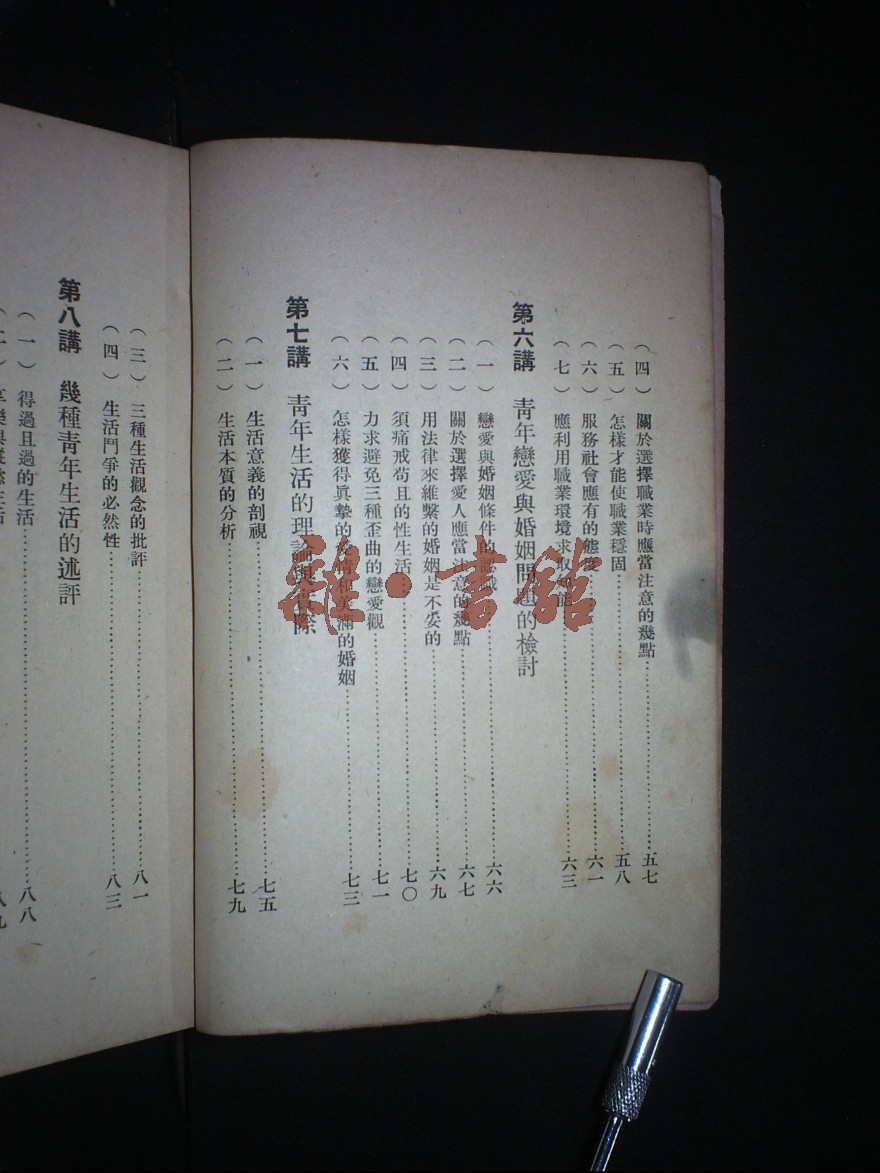 （四）　關於選擇職業時應當注意的幾點……五七
（五）　怎樣才能使職業穩固……五八
（六）　服務社會應有的態度……六一
（七）　應利用職業環境求取知能……六三
第六講　青年戀愛與婚姻問題的檢討
（一）　戀愛與婚姻條件的認識……六六
（二）　關於選擇愛人應當注意的幾點……六七
（三）　用法律來維繫的婚姻是不妥的……六九
（四）　須痛戒苟且的性生活……七〇
（五）　力求避免三種歪曲的戀愛觀……七一
（六）　怎樣獲得眞摯的愛情和美滿的婚姻……七三
第七講　青年生活的理論與實際
（一）　生活意義的剖視……七五
（二）　生活本質的分析……七九
（三）　三種生活觀念的批評……八一
（四）　生活鬥爭的必然性……八三
第八講　幾種青年生活的述評
（一）　得過且過的生活……八八
雜·書館